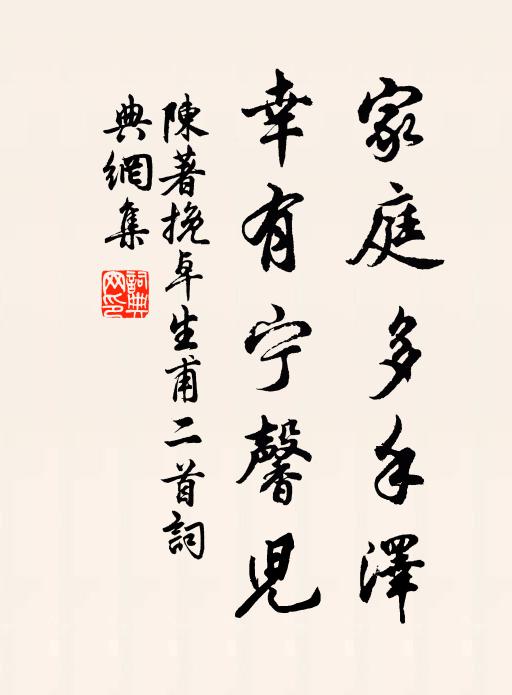 家庭多手澤
幸有宁馨児
陳著挽卓生甫二首詞
典網集
詞典網印